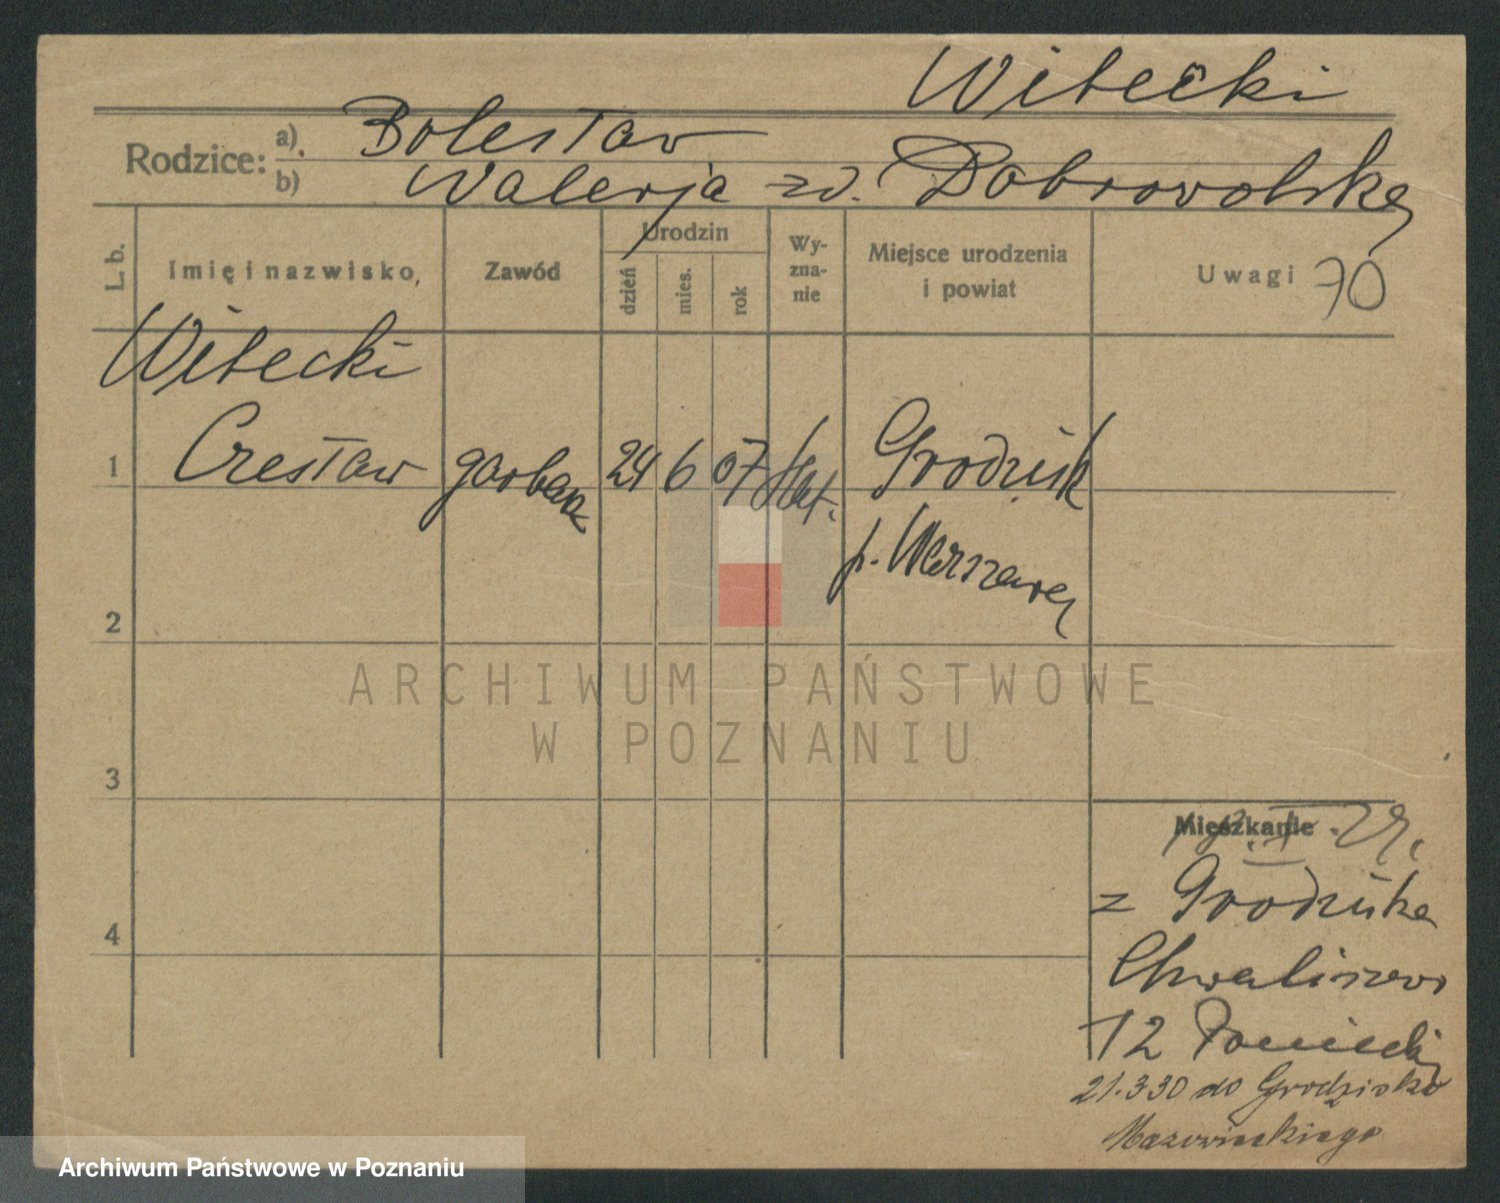 Witecki
Rodzice: a) Bolesław
b) Walerja zd. Dobrowolska
L. b.
Imię i nazwisko
Zawód
Urodzin
dzień
mies.
rok
Wy-
zna-
nie
Miejsce urodzenia
i powiat
Uwagi 70
Witecki
1 Czesław garbarz 24 6 07 kat. Grodzisk
p. Warszawa
2
3
4
Mieszkanie
29.
z Grodziska
Chwaliszewo
12
21.3 30 do Grodziska
Mazowieckiego
ARCHIWUM PAŃSTWOWE
W POZNANIU
Archiwum Państwowe w Poznaniu